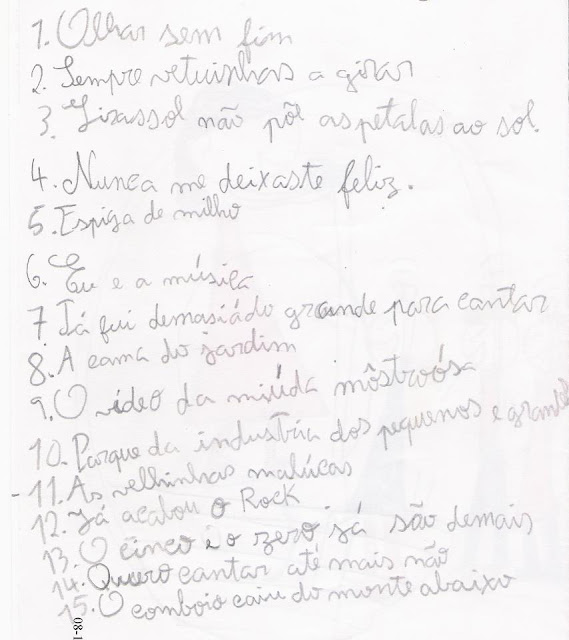 1. Olhar sem fim
2. Sempre vetuinhas a girar
3. Girassol não põe as petalas ao sol.
4. Nunca me deixaste feliz.
5. Espiga de milho
6. Eu e a música
7. Já fui demasiádo grande para cantar
8. A cama do jardim
9. O vídeo da miúda môstroósa
10. Parque da industria dos pequenos e grandes
- 11. As velhinhas malúcas
12. Já acabou o Rock
13. O cinco e o zero já são demais
14. Quero cantar até mais não
15. O comboio caiu do monte abaixo
08-1